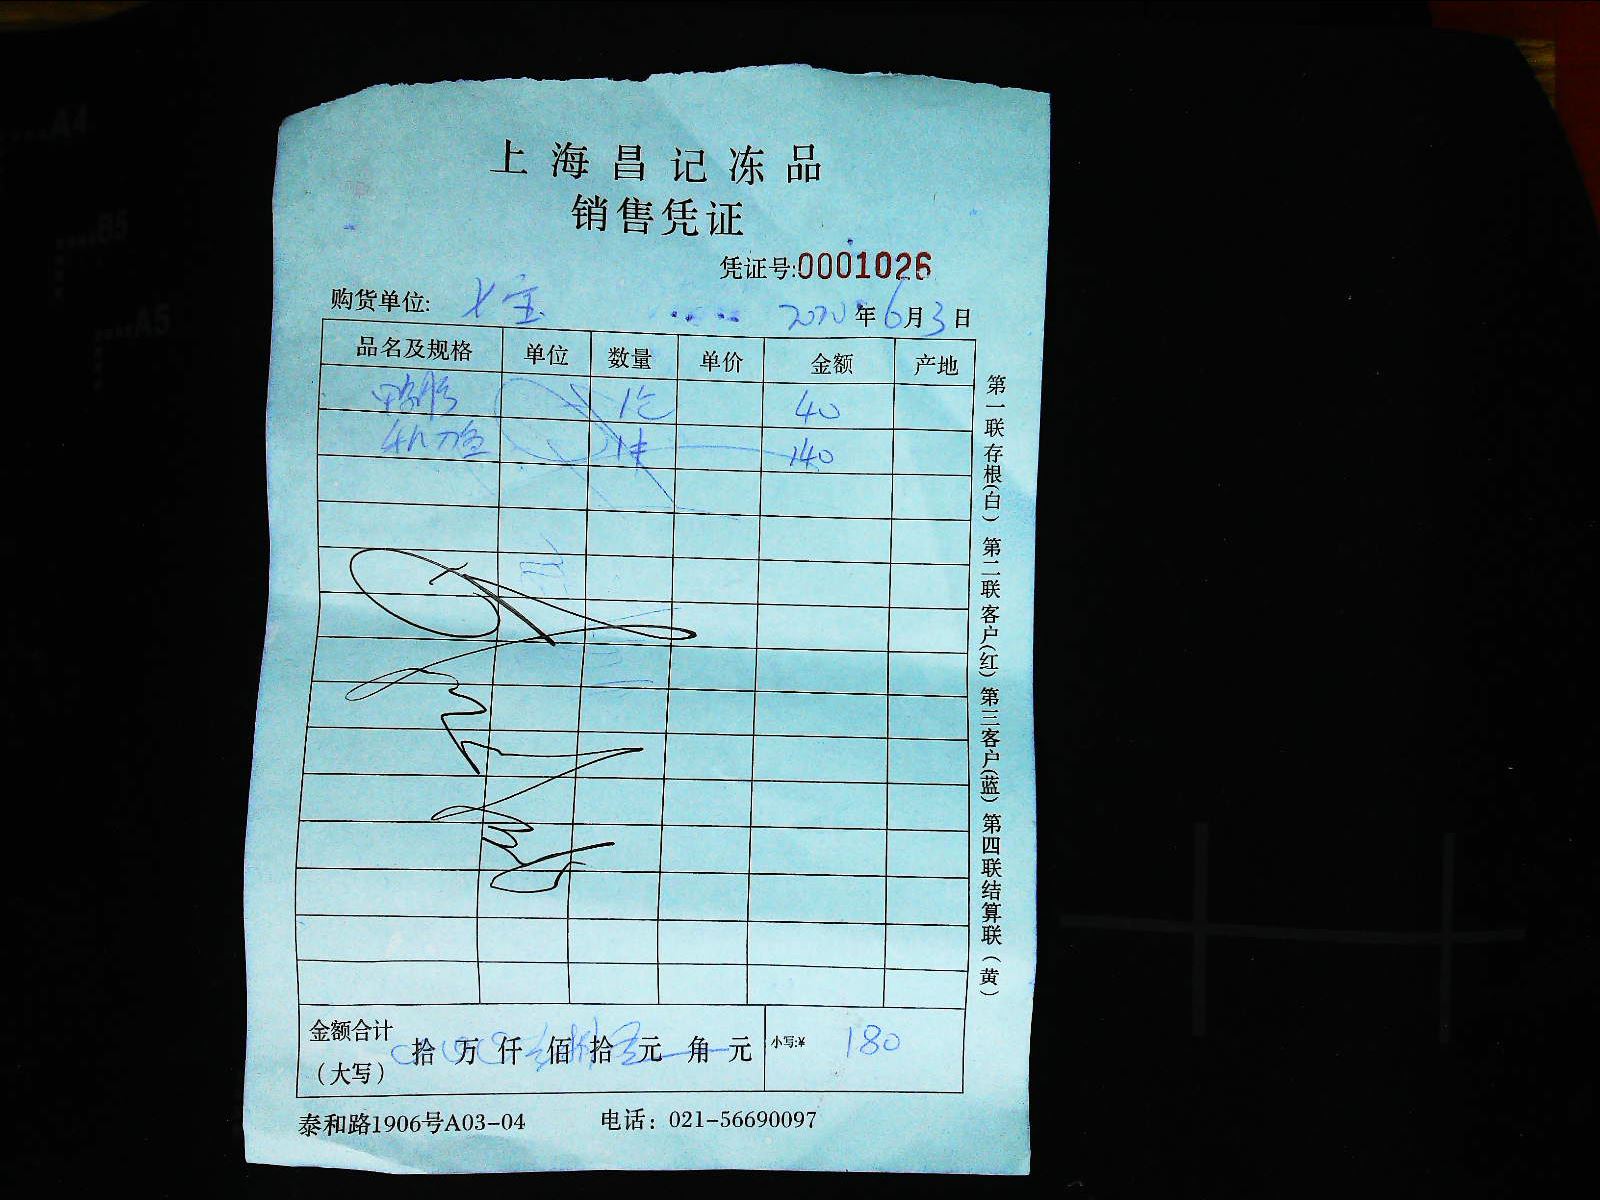 上海昌记冻品
销售凭证
凭证号:0001026
购货单位: 七宝 2020年6月3日
品名及规格 单位 数量 单价 金额 产地
鸭胗 40
秋刀鱼 140
金额合计
(大写) 拾 万 仟 佰 拾 元 角 元 小写:¥ 180
泰和路1906号A03-04 电话: 021-56690097
第一联存根(白) 第二联客户(红) 第三客户(蓝) 第四联结算联(黄)
A4
B5
A5